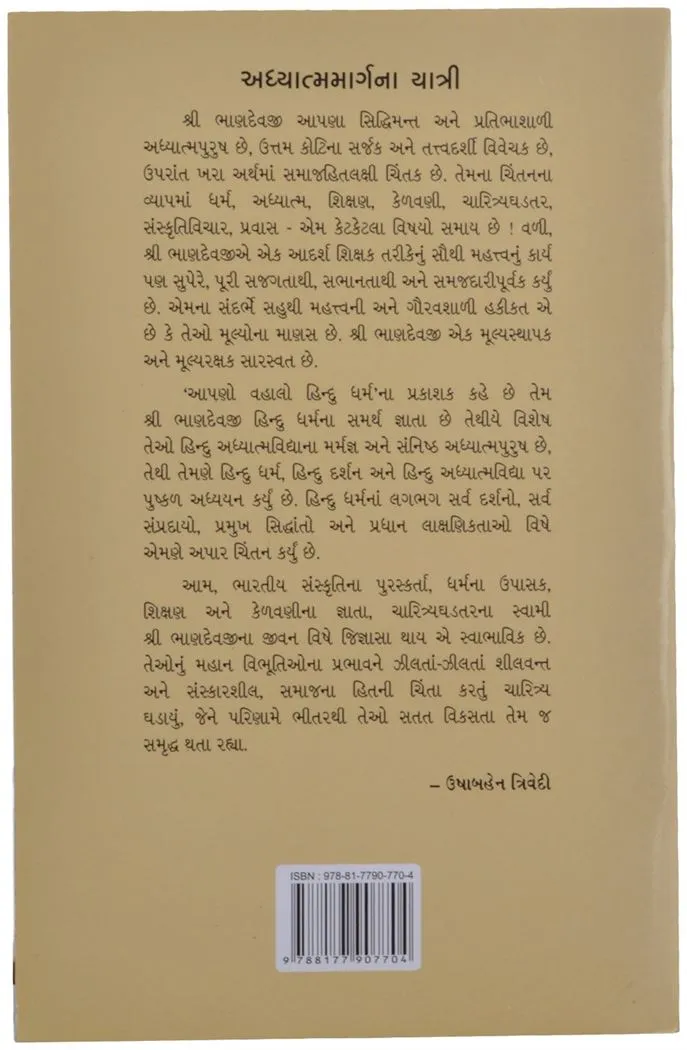 અધ્યાત્મમાર્ગના યાત્રી
શ્રી ભાણદેવજી આપણા સિદ્ધિમન્ત અને પ્રતિભાશાળી
અધ્યાત્મપુરુષ છે, ઉત્તમ કોટિના સર્જક અને તત્ત્વદર્શી વિવેચક છે,
ઉપરાંત ખરા અર્થમાં સમાજહિતલક્ષી ચિંતક છે. તેમના ચિંતનના
વ્યાપમાં ધર્મ, અધ્યાત્મ, શિક્ષણ, કેળવણી, ચારિત્ર્યઘડતર,
સંસ્કૃતિવિચાર, પ્રવાસ - એમ કેટકેટલા વિષયો સમાય છે ! વળી,
શ્રી ભાણદેવજીએ એક આદર્શ શિક્ષક તરીકેનું સૌથી મહત્ત્વનું કાર્ય
પણ સુપેરે, પૂરી સજગતાથી, સભાનતાથી અને સમજદારીપૂર્વક કર્યું
છે. એમના સંદર્ભે સહુથી મહત્ત્વની અને ગૌરવશાળી હકીકત એ
છે કે તેઓ મૂલ્યોના માણસ છે. શ્રી ભાણદેવજી એક મૂલ્યસ્થાપક
અને મૂલ્યરક્ષક સારસ્વત છે.
‘આપણો વહાલો હિન્દુ ધર્મ’ના પ્રકાશક કહે છે તેમ
શ્રી ભાણદેવજી હિન્દુ ધર્મના સમર્થ જ્ઞાતા છે તેથીયે વિશેષ
તેઓ હિન્દુ અધ્યાત્મવિદ્યાના મર્મજ્ઞ અને સંનિષ્ઠ અધ્યાત્મપુરુષ છે,
તેથી તેમણે હિન્દુ ધર્મ, હિન્દુ દર્શન અને હિન્દુ અધ્યાત્મવિદ્યા પર
પુષ્કળ અધ્યયન કર્યું છે. હિન્દુ ધર્મનાં લગભગ સર્વ દર્શનો, સર્વ
સંપ્રદાયો, પ્રમુખ સિદ્ધાંતો અને પ્રધાન લાક્ષણિકતાઓ વિષે
એમણે અપાર ચિંતન કર્યું છે.
આમ, ભારતીય સંસ્કૃતિના પુરસ્કર્તા, ધર્મના ઉપાસક,
શિક્ષણ અને કેળવણીના જ્ઞાતા, ચારિત્ર્યઘડતરના સ્વામી
શ્રી ભાણદેવજીના જીવન વિષે જિજ્ઞાસા થાય એ સ્વાભાવિક છે.
તેઓનું મહાન વિભૂતિઓના પ્રભાવને ઝીલતાં-ઝીલતાં શીલવન્ત
અને સંસ્કારશીલ, સમાજના હિતની ચિંતા કરતું ચારિત્ર્ય
ઘડાયું, જેને પરિણામે ભીતરથી તેઓ સતત વિકસતા તેમ જ
સમૃદ્ધ થતા રહ્યા.
– ઉષાબહેન ત્રિવેદી
ISBN : 978-81-7790-770-4
9 788177 907704